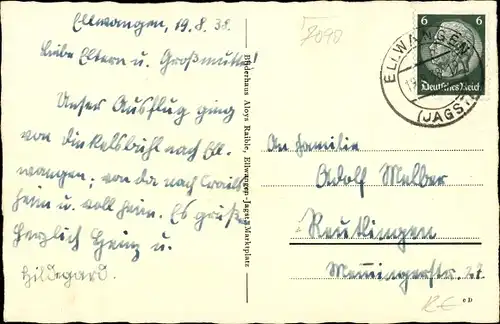 Ellwangen, 19.8.38.
7090
Liebe Eltern u. Großmutter!
Unser Ausflug ging
von Dinkelsbühl nach Ell-
wangen; von da nach Crails-
heim u. voll heim. Es grüßt
herzlich Heinz u.
Hildegard.
Bilderhaus Aloys Raible, Ellwangen-Jagst, Marktplatz
6 6
Deutsches Reich
ELLWANGEN
(JAGST)
An Familie
Adolf Melber
Reutlingen
Menningerstr. 27
e D